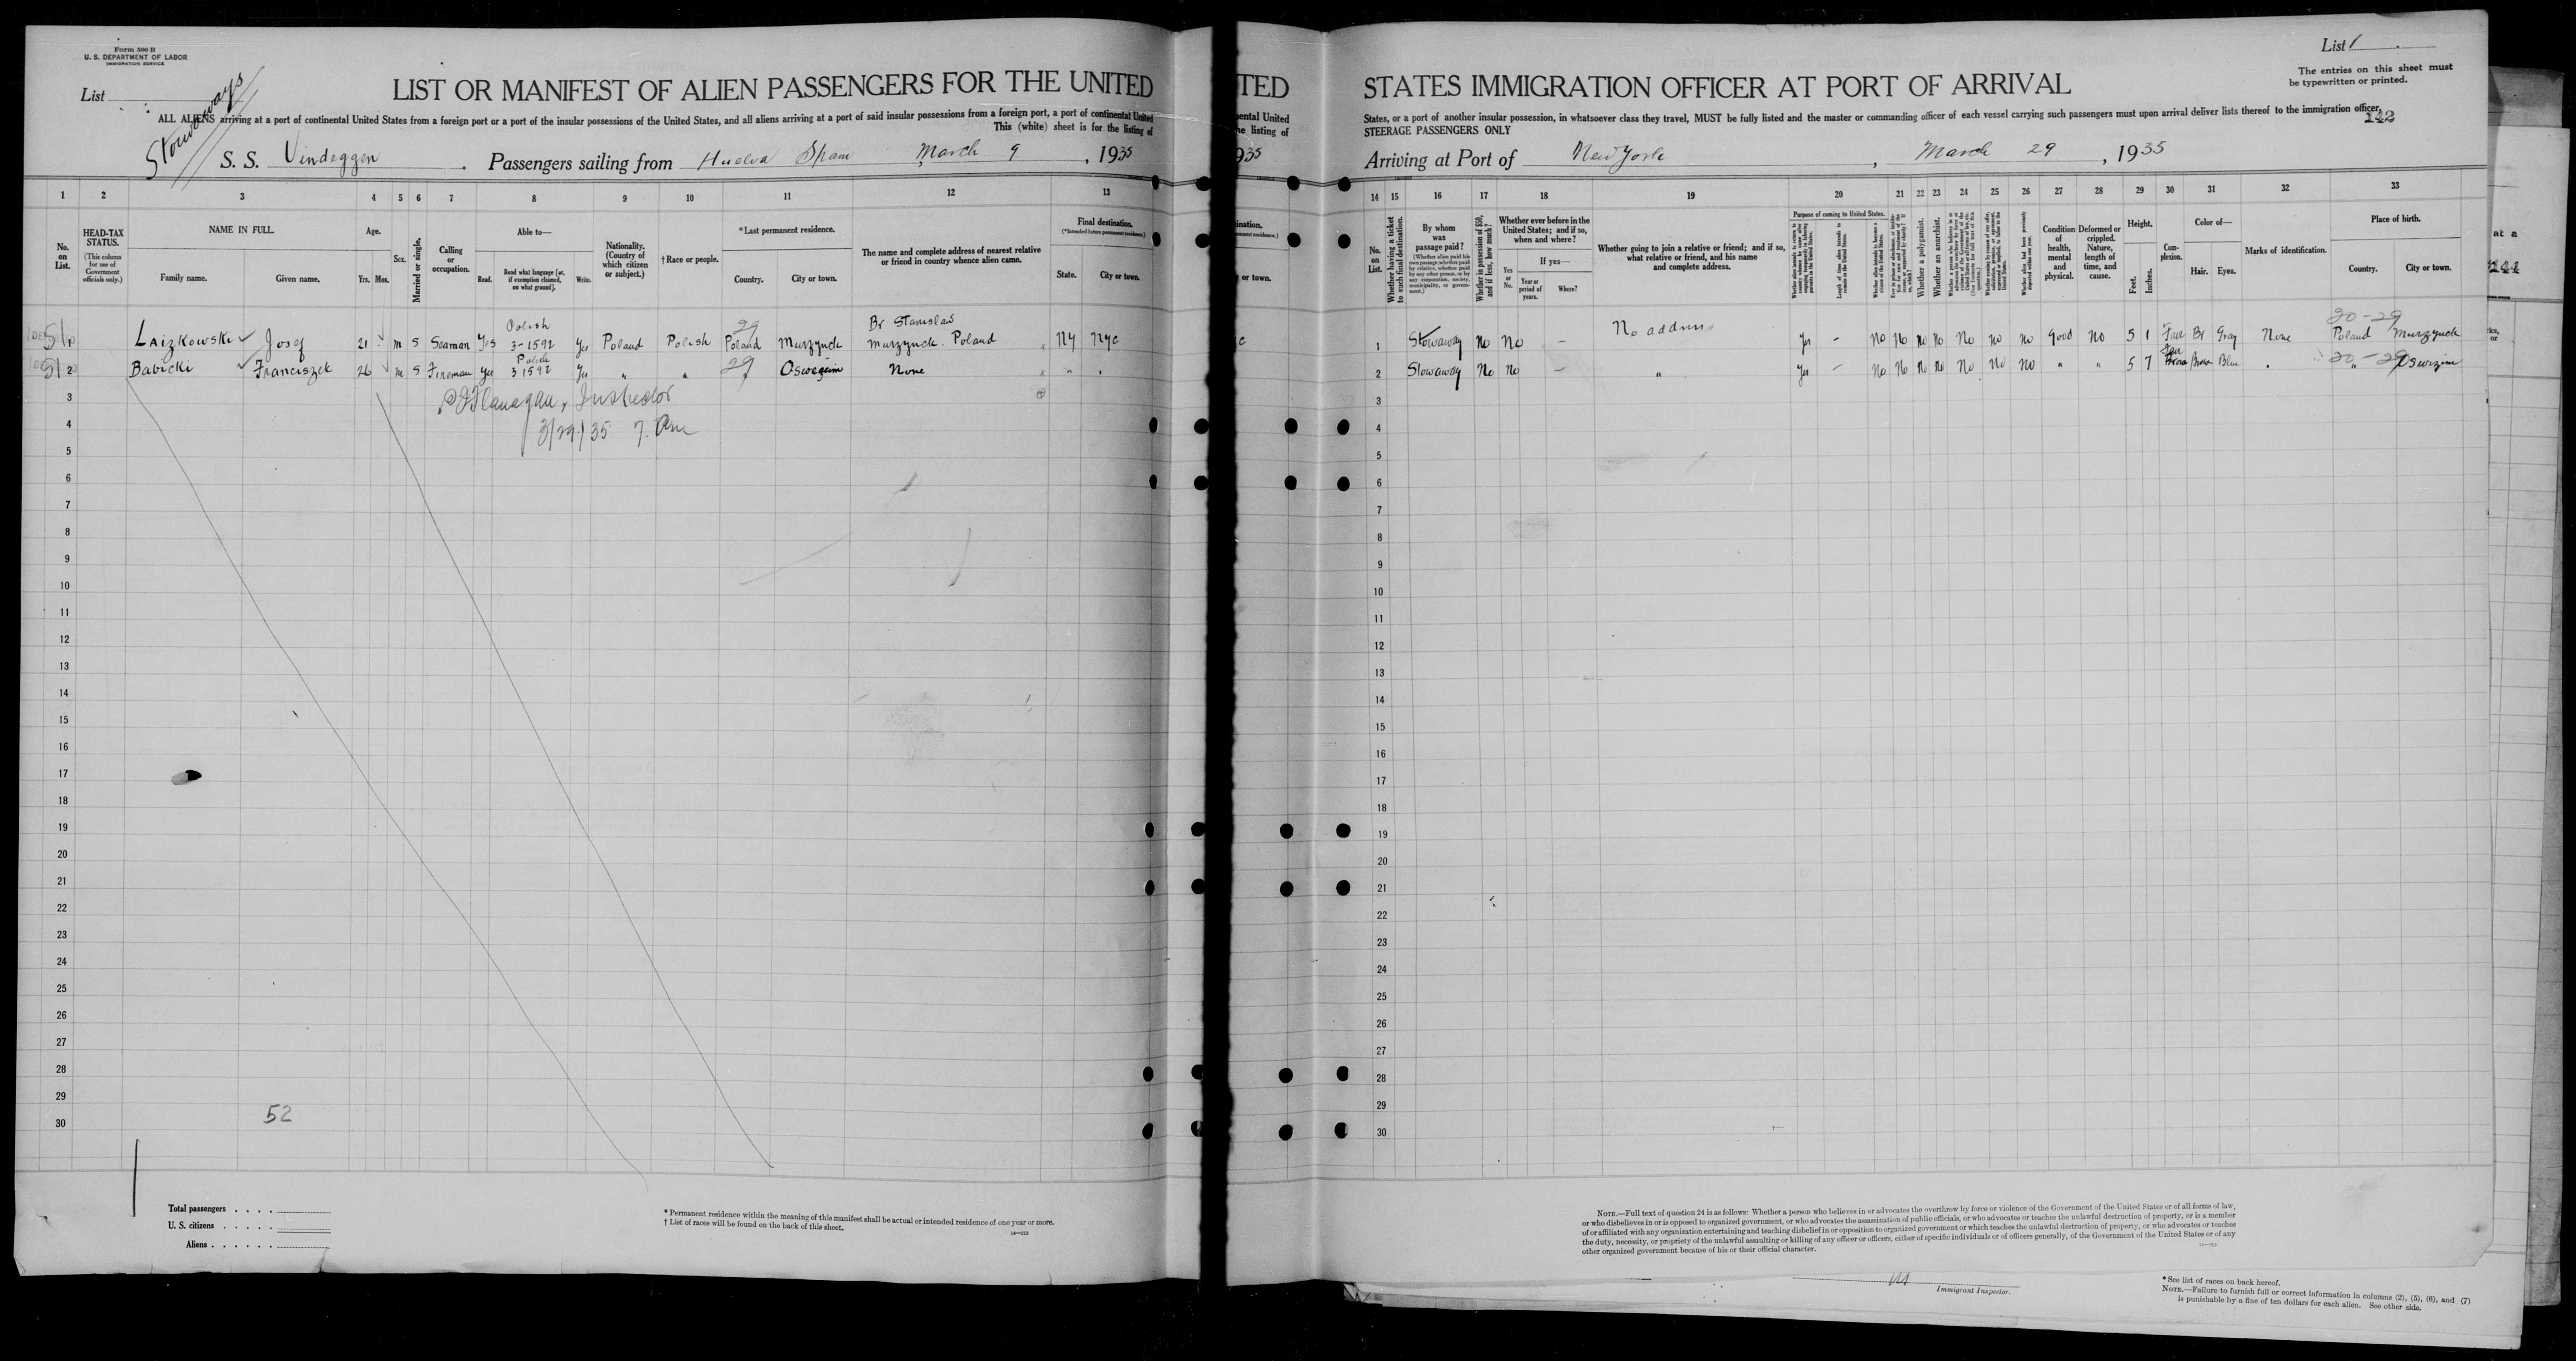 Form 500 B
U. S. DEPARTMENT OF LABOR
IMMIGRATION SERVICE
List
Stowaways
LIST OR MANIFEST OF ALIEN PASSENGERS FOR THE UNITED
ALL ALIENS arriving at a port of continental United States from a foreign port or a port of the insular possessions of the United States, and all aliens arriving at a port of said insular possessions from a foreign port, a port of continental United
This (white) sheet is for the listing of
S. S. Vindeggen . Passengers sailing from Huelva Spain March 9 , 1935
1 2 3 4 5 6 7 8 9 10 11 12 13
No. on List.
HEAD-TAX STATUS. (This column for use of Government officials only.)
NAME IN FULL.
Family name. Given name.
Age.
Yrs. Mos.
Sex.
Married or single.
Calling or occupation.
Able to—
Read. Read what language [or, if exemption claimed, on what ground]. Write.
Nationality. (Country of which citizen or subject.)
† Race or people.
*Last permanent residence.
Country. City or town.
The name and complete address of nearest relative or friend in country whence alien came.
Final destination.
(*Intended future permanent residence.)
State. City or town.
1 Laizkowski Josef 21 m S Seaman Yes Polish 3-1592 Yes Poland Polish 29 Poland Murzynck Br Stanislaw Murzynck. Poland NY NYC
2 Babicki Franciszek 26 m S Fireman Yes Polish 3 1592 Yes " " 29 Oswegim None " "
3
Flanagan, Inspector
4
3/29/35 7. Am
5
6
7
8
9
10
11
12
13
14
15
16
17
18
19
20
21
22
23
24
25
26
27
28
29
52
30
Total passengers
U. S. citizens
Aliens
* Permanent residence within the meaning of this manifest shall be actual or intended residence of one year or more.
† List of races will be found on the back of this sheet.
TED
ental United
he listing of
935
ination.
or town.
c
List 1
The entries on this sheet must
be typewritten or printed.
STATES IMMIGRATION OFFICER AT PORT OF ARRIVAL
States, or a port of another insular possession, in whatsoever class they travel, MUST be fully listed and the master or commanding officer of each vessel carrying such passengers must upon arrival deliver lists thereof to the immigration officer.
142
STEERAGE PASSENGERS ONLY
Arriving at Port of New York , March 29 , 1935
14 15 16 17 18 19 20 21 22 23 24 25 26 27 28 29 30 31 32 33
No. on List.
Whether having a ticket to such final destination.
By whom was passage paid?
Whether in possession of $50, and if less, how much?
Whether ever before in the United States; and if so, when and where?
Yes or No.
If yes—
Year or period of years. Where?
Whether going to join a relative or friend; and if so, what relative or friend, and his name and complete address.
Purpose of coming to United States.
Whether a polygamist.
Whether an anarchist.
Condition of health, mental and physical.
Deformed or crippled. Nature, length of time, and cause.
Height.
Feet. Inches.
Complexion.
Color of—
Hair. Eyes.
Marks of identification.
Place of birth.
Country. City or town.
1 Stowaway No No – No address Yes – No No No No No No No Good No 5 1 Fair Br Gray None 20-29 Poland Murzynck
2 Stowaway No No – " Yes – No No No No No No No " " 5 7 Fair Brown Blue " 20-29 " Oswizim
3
4
5
6
7
8
9
10
11
12
13
14
15
16
17
18
19
20
21
22
23
24
25
26
27
28
29
30
NOTE.—Full text of question 24 is as follows: Whether a person who believes in or advocates the overthrow by force or violence of the Government of the United States or of all forms of law,
or who disbelieves in or is opposed to organized government, or who advocates the assassination of public officials, or who advocates or teaches the unlawful destruction of property, or is a member
of or affiliated with any organization entertaining and teaching disbelief in or opposition to organized government or which teaches the unlawful destruction of property, or who advocates or teaches
the duty, necessity, or propriety of the unlawful assaulting or killing of any officer or officers, either of specific individuals or of officers generally, of the Government of the United States or of any
other organized government because of his or their official character.
Immigrant Inspector.
* See list of races on back hereof.
NOTE.—Failure to furnish full or correct information in columns (2), (5), (6), and (7)
is punishable by a fine of ten dollars for each alien. See other side.
at a
144